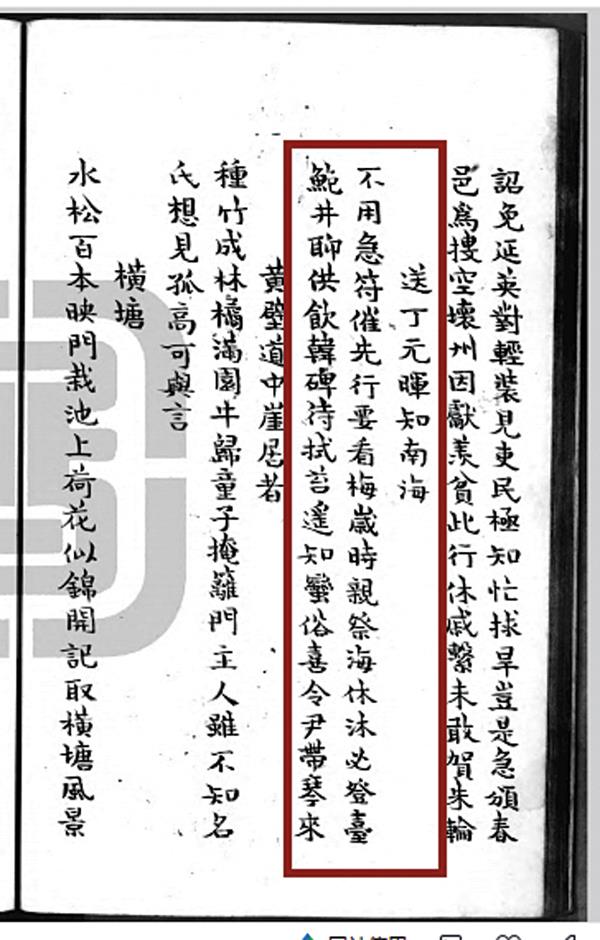 詔免延英對輕裝見吏民極知忙捄旱豈是急頒春
邑爲摟空壞州因獻羨貧此行休戚繫未敢賀朱輪
送丁元暉知南海
不用急符催先行要看梅歲時親祭海休沐必登臺
鮑井聊供飲韓碑待拭苔遙知蠻俗喜令尹帶琴來
黃壁道中崖居者
種竹成林橘滿園牛歸童子掩籬門主人雖不知名
氏想見孤高可與言
橫塘
水松百本映門栽池上荷花似錦開記取橫塘風景